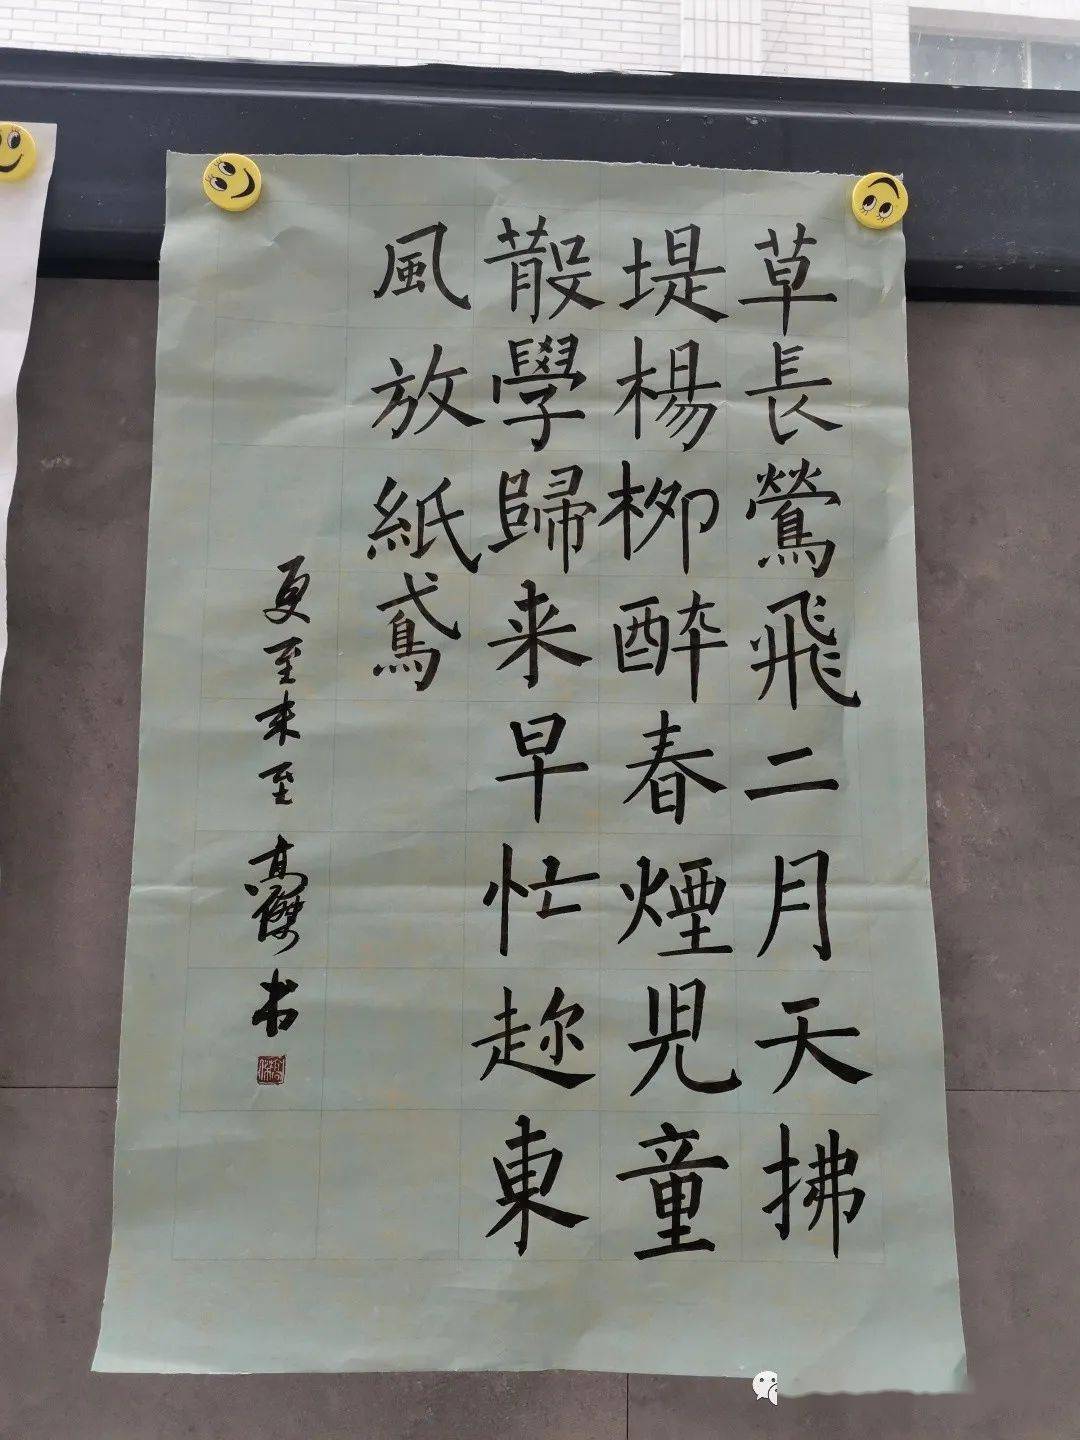 草長鶯飛二月天拂
堤楊柳醉春煙兒童
散學歸来早忙趁東
風放紙鳶
夏至未至 高傑书